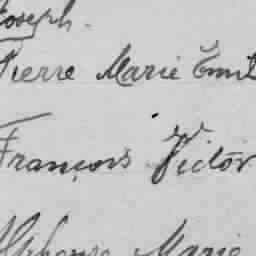 Joseph.
Pierre Marie Emil
François Victor
Alphonse Marie